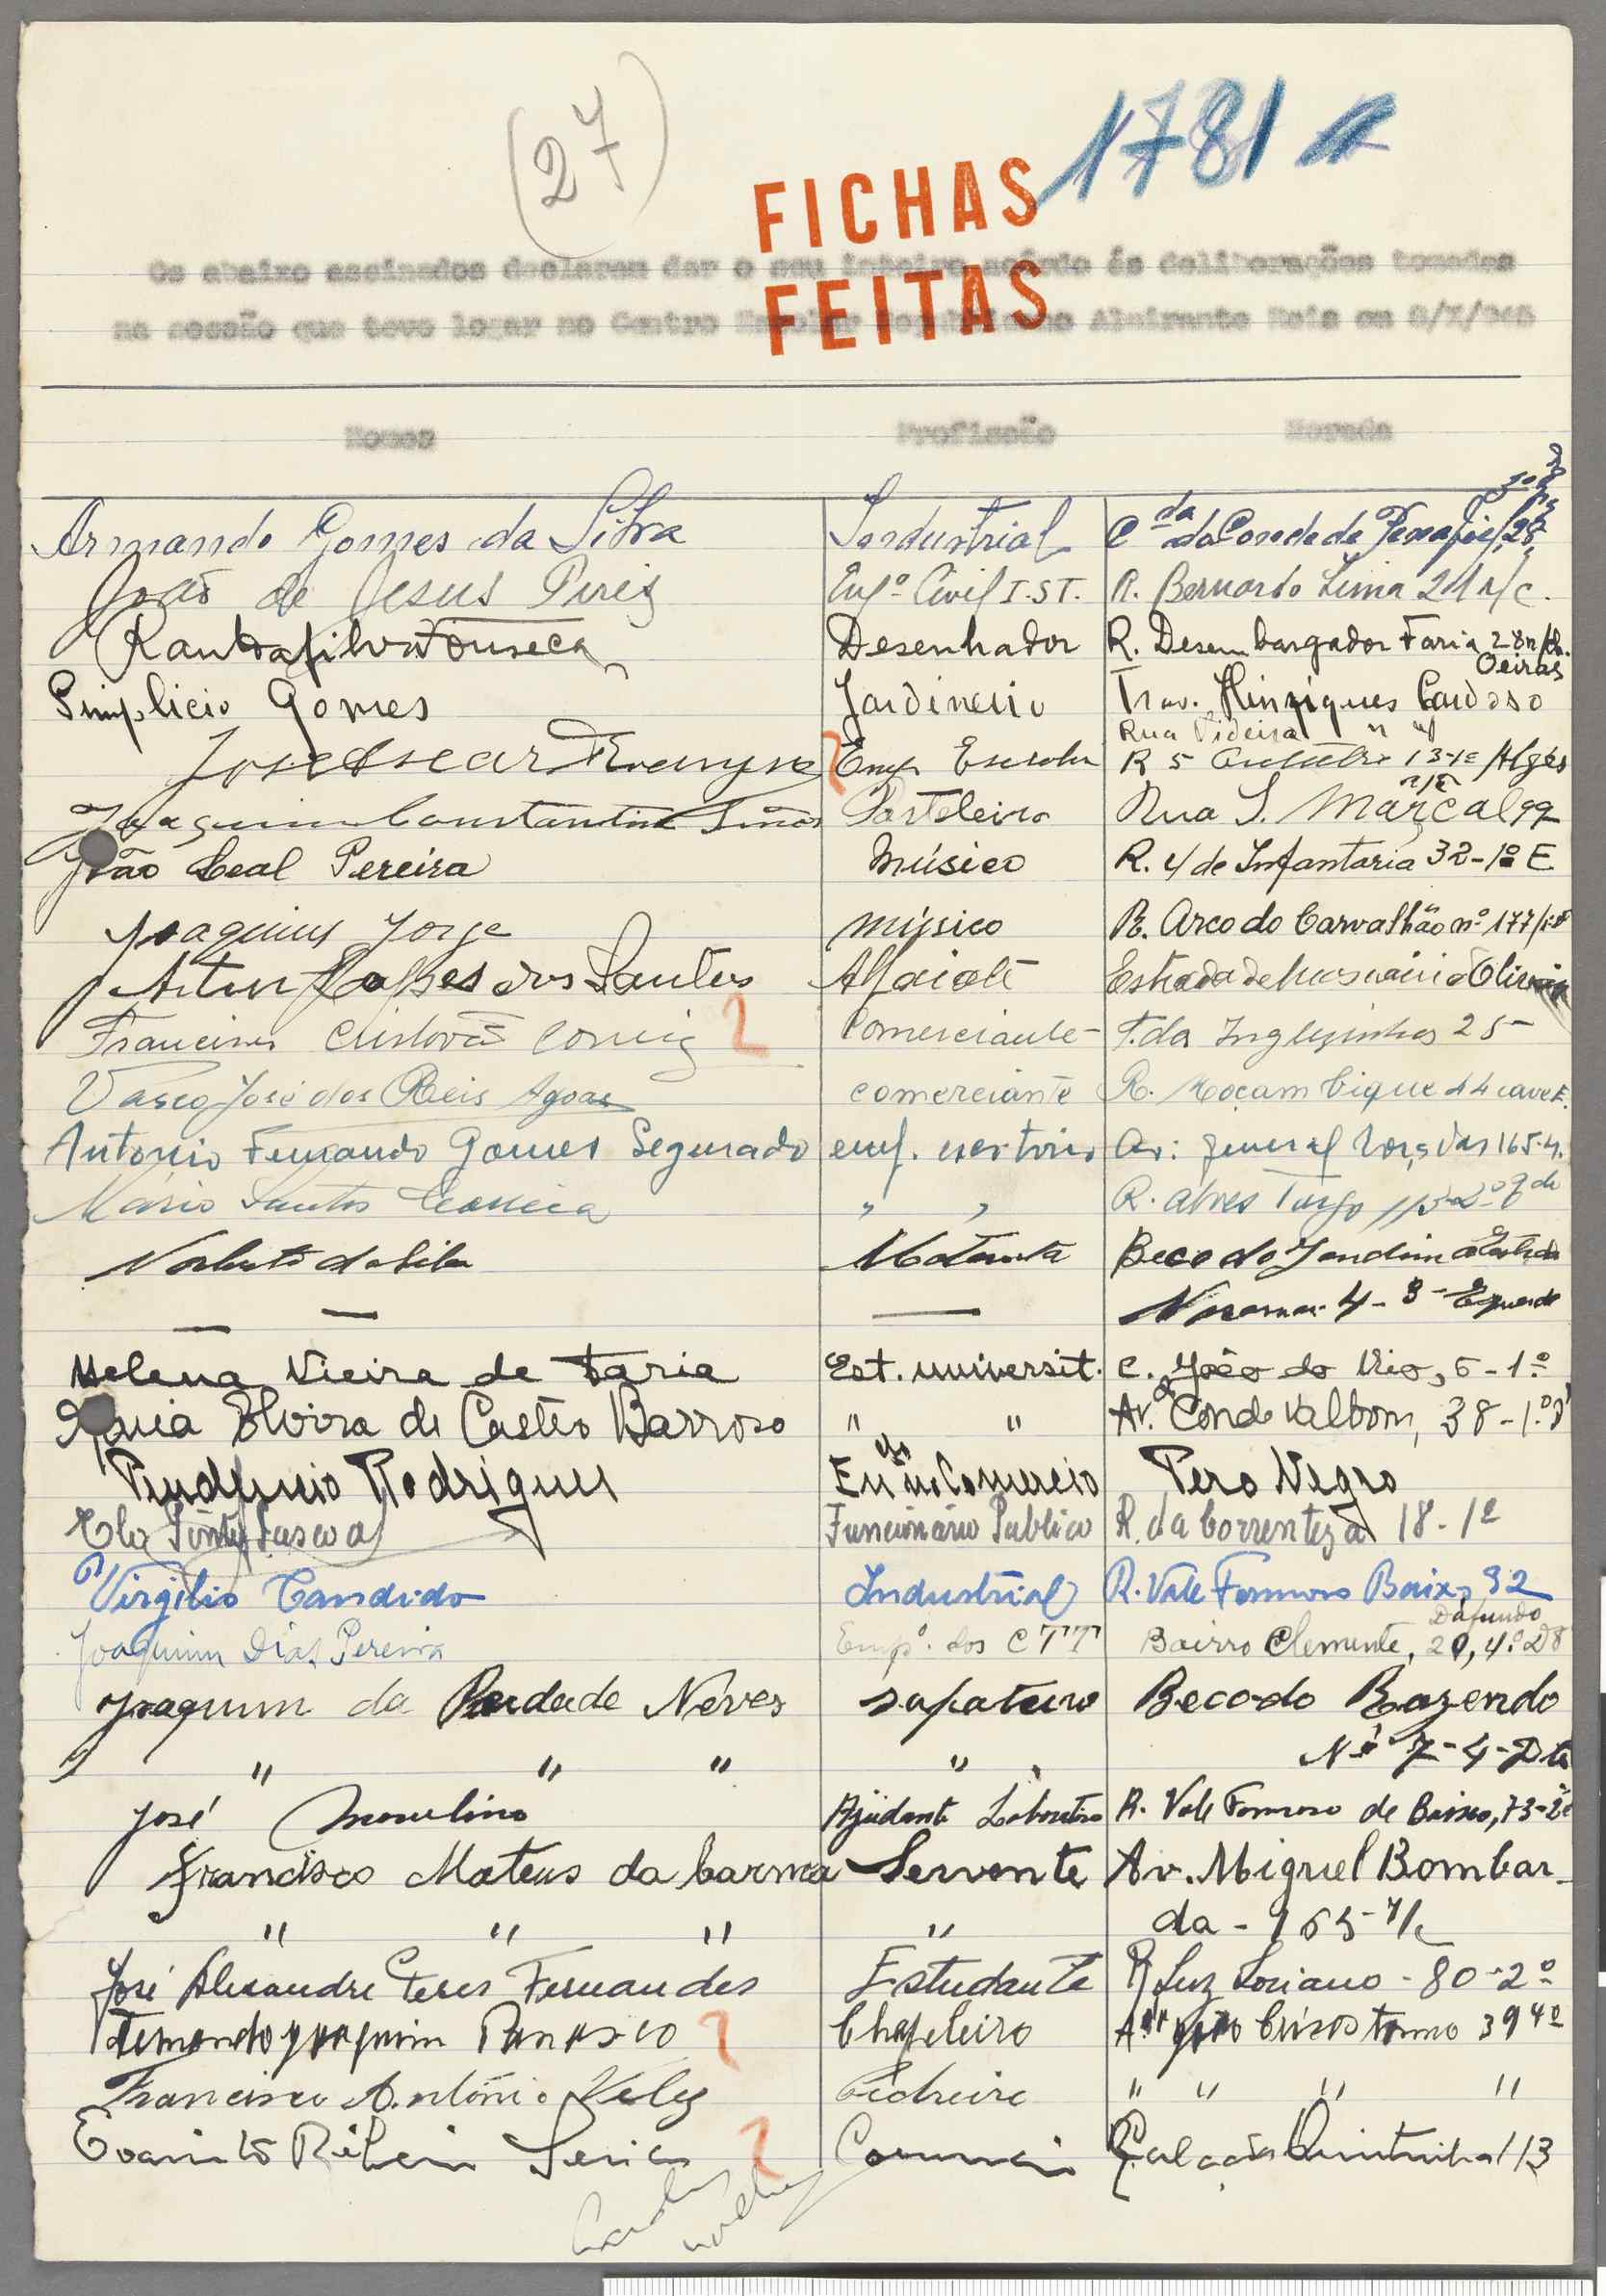 (27)
1781
FICHAS
FEITAS
Os abaixo assinados declaram dar o seu inteiro acôrdo ás deliberações tomadas
na sessão que teve logar no Centro Escolar Republicano Almirante Reis em 8/X/945
Nomes Profissão Morada
Armando Gomes da Silva Industrial C.da do Conde de Penafiel, 28
João de Jesus Pires Engº Civil I.S.T. R. Bernardo Lima 21 r/c.
Raul da Silva Fonseca Desenhador R. Desembargador Faria 28 Oeiras
Simplicio Gomes Jardineiro Trav. Henriques Cardoso
Rua Videira
José Emp. R 5 Outubro Algés
Joaquim Constantino Pasteleiro Rua S. Marçal 99
João Leal Pereira Músico R. 4 de Infantaria 32-1º E
Joaquim Jorge Músico R. Arco do Carvalhão nº 177
Artur dos Santos Alfaiate Estrada de
Francisco Cristovão Comerciante T. da Inglezinhos 25
Vasco José dos Reis Agoas comerciante R. Moçambique 44 cave E.
Antonio Fernando Gomes Segurado emp. escritorio Av: General Roçadas 165-4.
Mário Santos " " R. Alves Torgo
Norberto da Silva Beco do Jardim
— — 4-3- Esquerdo
Helena Vieira de Faria Est. universit. C. João do Rio, 5-1.º
Maria Elvira de Castro Barroso " " Av. Conde Valbom, 38-1.º
Prudencio Rodrigues Emº no Comercio Pero Negro
Pascoal Funcionário Publico R. da Correnteza 18-1º
Virgilio Candido Industrial R. Vale Formoso Baixo 92
Joaquim Dias Pereira Empº. dos CTT Bairro Clemente, 20, 4.º Dafundo
Joaquim da Piedade Neves sapateiro Beco do Rozendo
" " " " Nº 7-4-Dto
José Marcelino Ajudante R. Vale Formoso de Baixo, 73-2º
Francisco Mateus da Servente Av. Miguel Bombar-
" " " " da - 165-r/c
José Alexandre Peres Fernandes Estudante R Luz Soriano - 80-2º
Fernando Joaquim Chapeleiro João Crisostomo 39 4º
Francisco António Pedreiro " " " "
Evaristo Ribeiro Calçada Quintinha 113